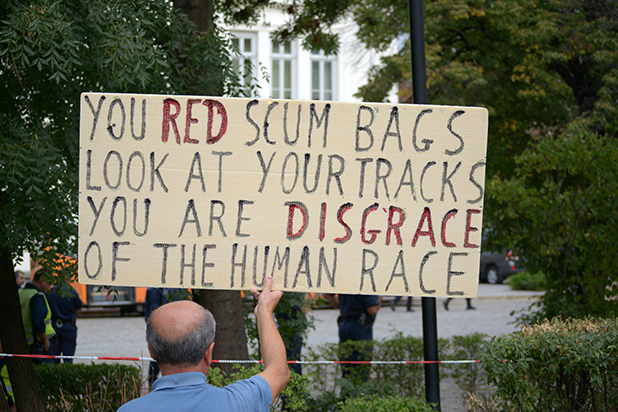 YOU RED SCUM BAGS
LOOK AT YOUR TRACKS
YOU ARE DISGRACE
OF THE HUMAN RACE